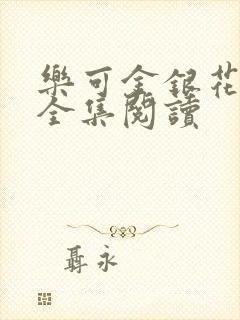 樂可金銀花
全集閱讀
聶永